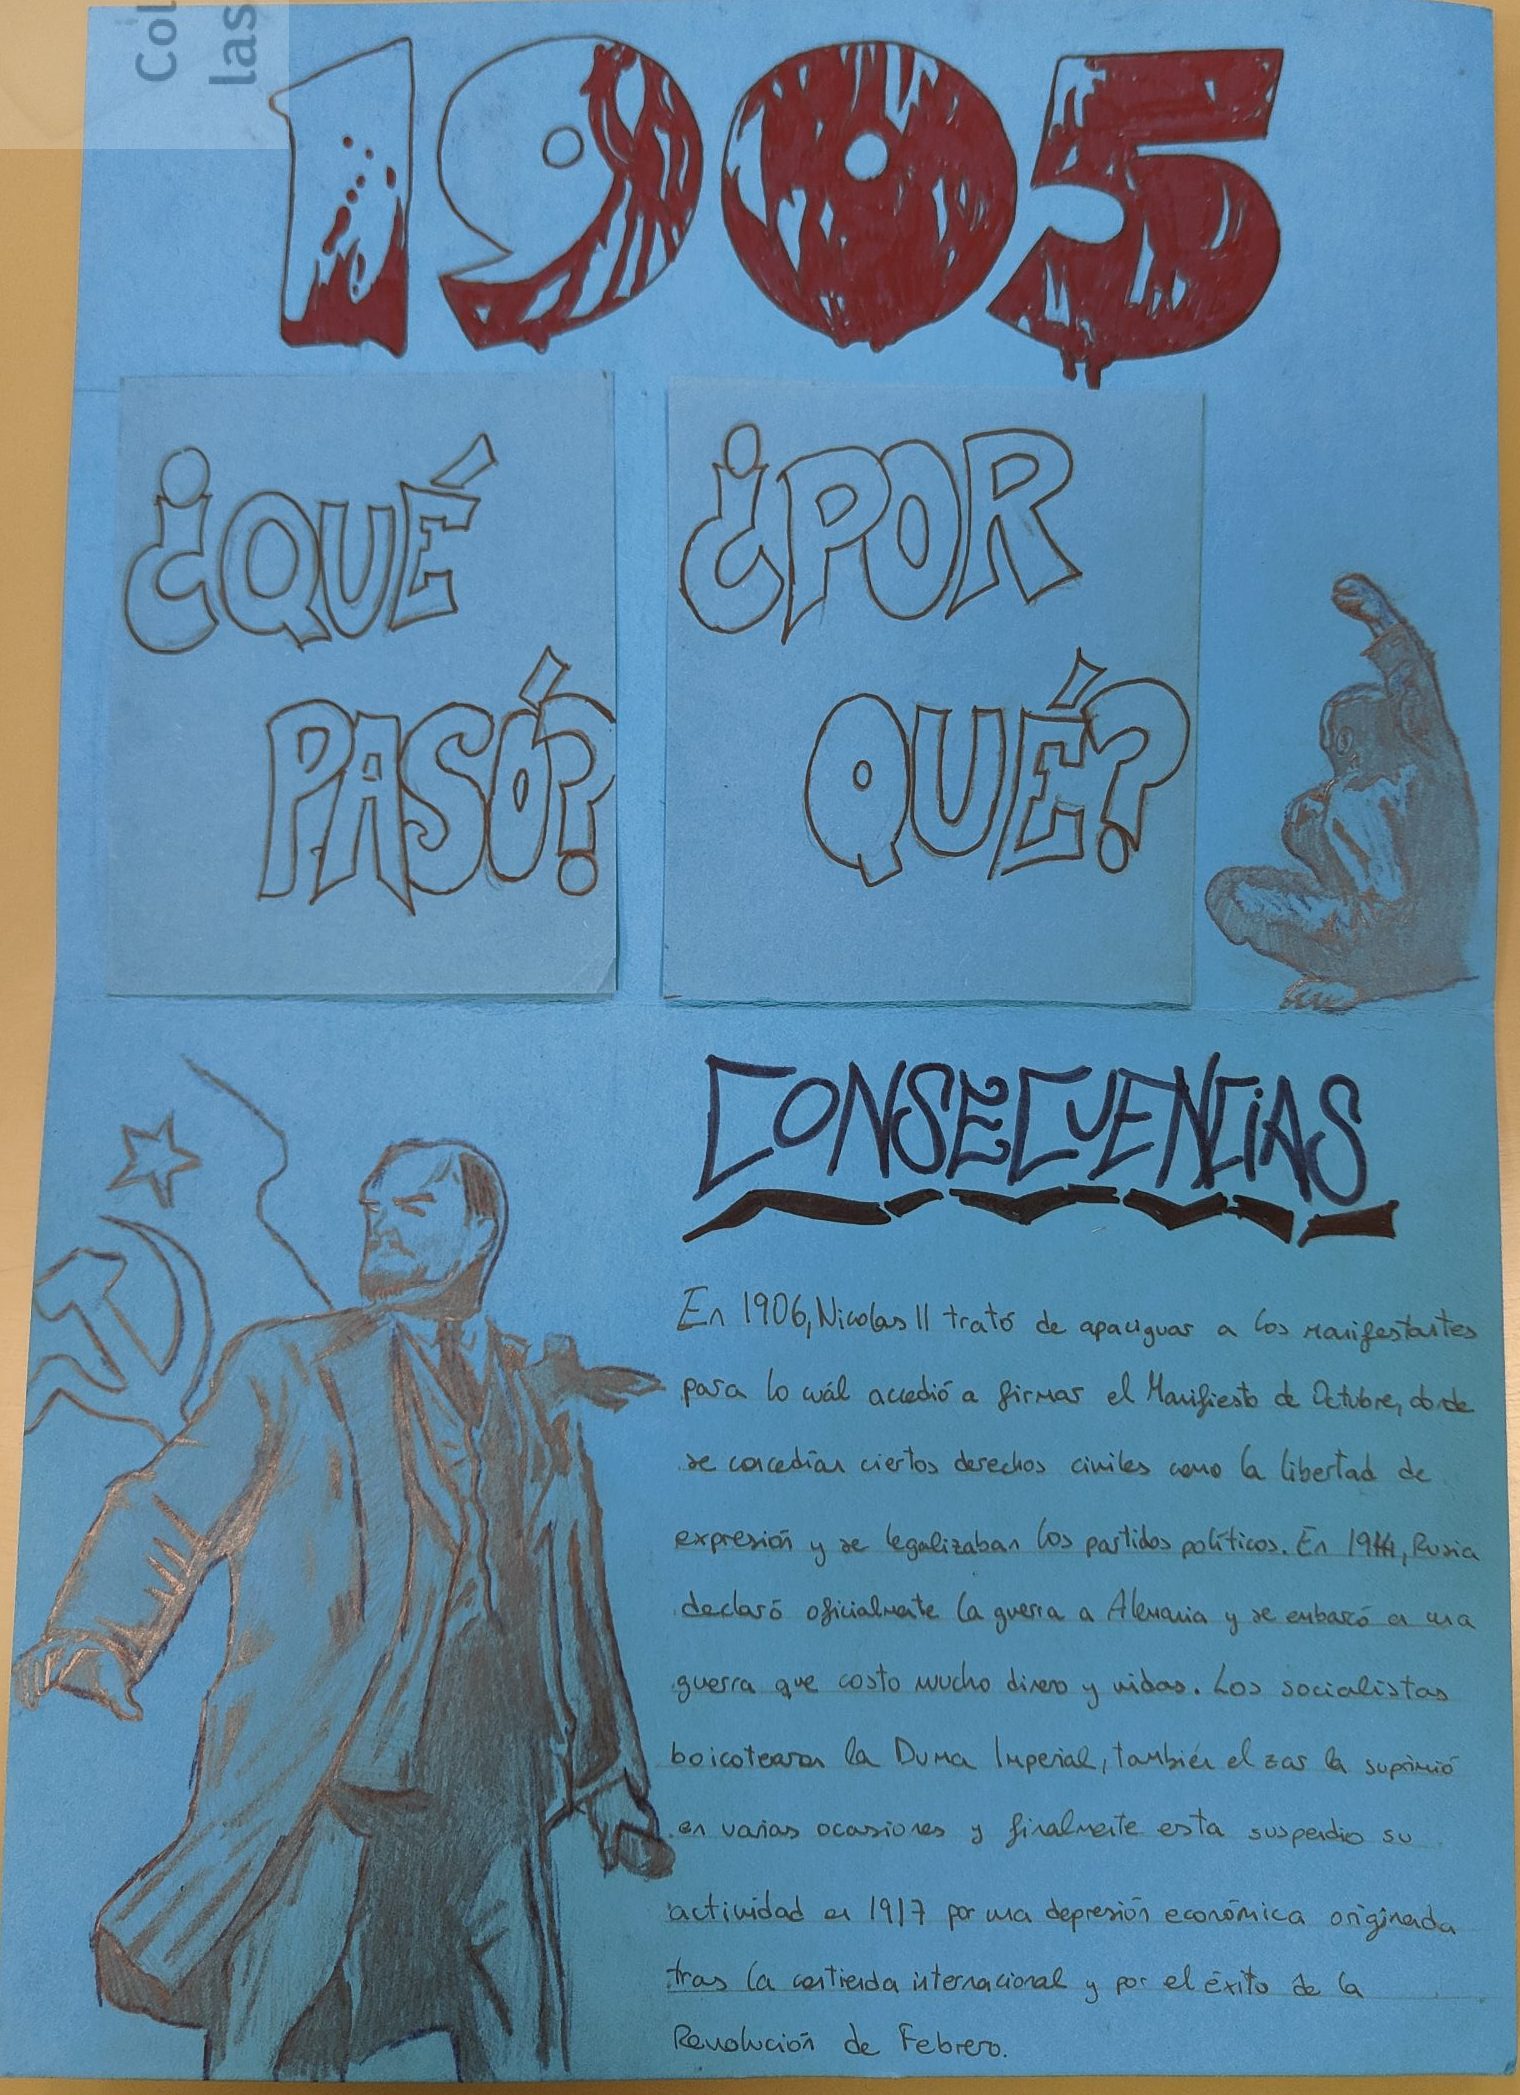 Col
las
1905
¿QUÉ
PASÓ?
¿POR
QUÉ?
CONSECUENCIAS
En 1906, Nicolas II trató de apaciguar a los manifestantes
para lo cuál accedió a firmar el Manifiesto de Octubre, donde
se concedían ciertos derechos civiles como la libertad de
expresión y se legalizaban los partidos políticos. En 1914, Rusia
declaró oficialmente la guerra a Alemania y se embarcó en una
guerra que costo mucho dinero y vidas. Los socialistas
boicotearon la Duma Imperial, también el zar la suprimió
en varias ocasiones y finalmente esta suspendio su
actividad en 1917 por una depresión económica originada
tras la contienda internacional y por el éxito de la
Revolución de Febrero.